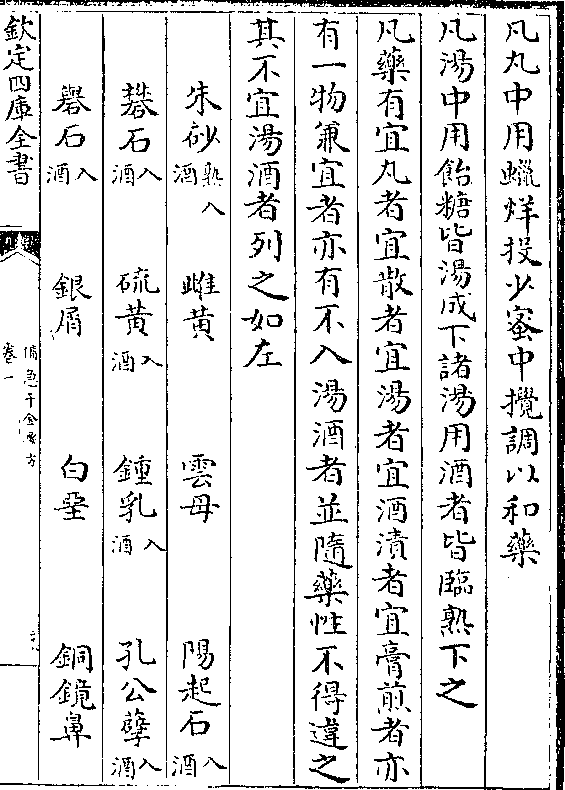 凡丸中用蠟烊投少蜜中攪調以和藥
凡湯中用飴糖皆湯成下諸湯用酒者皆臨熟下之
凡藥有宜丸者宜散者宜湯者宜酒漬者宜膏煎者亦
有一物兼宜者亦有不入湯酒者並隨藥性不得違之
其不宜湯酒者列之如左
朱砂熟入酒　雌黄　雲母　陽起石入酒
礬石入酒　硫黄入酒　鍾乳入酒　孔公孽入酒
礜石入酒　銀屑　白堊　銅鏡鼻
欽定四庫全書
備急千金要方
卷一